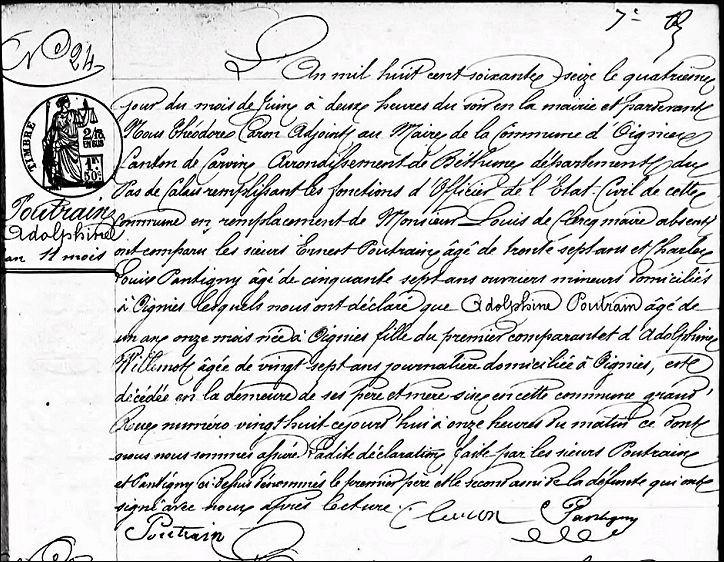 7e
No 24
TIMBRE
2/10
EN SUS
1F
50c
Poutrain
Adolphine
an 11 mois
L'An mil huit cent soixante seize le quatrième
jour du mois de Juin à deux heures du soir en la mairie et pardevant
Nous Théodore Caron Adjoint au Maire de la Commune d'Oignies
Canton de Carvin Arrondissement de Béthune département du
Pas de Calais remplissant les fonctions d'Officier de l'Etat-Civil de cette
Commune en remplacement de Monsieur Louis de Clercq maire absent
ont comparu les sieurs Ernest Poutrain âgé de trente sept ans et Charles
Louis Pantigny âgé de cinquante sept ans ouvriers mineurs domiciliés
à Oignies lesquels nous ont déclaré que Adolphine Poutrain âgé de
un an onze mois née à Oignies fille du premier comparant et d'Adolphine
Willemot âgée de vingt sept ans journalière domiciliée à Oignies, est
décédée en la demeure de ses père et mère sise en cette commune grand'
Rue numéro vingt huit cejourd'hui à onze heures du matin ce dont
nous nous sommes assuré Ladite déclaration faite par les sieurs Poutrain
et Pantigny ci-dessus dénommés le premier père et le second ami de la défunte qui ont
signé avec nous après lecture. Caron Pantigny
Poutrain